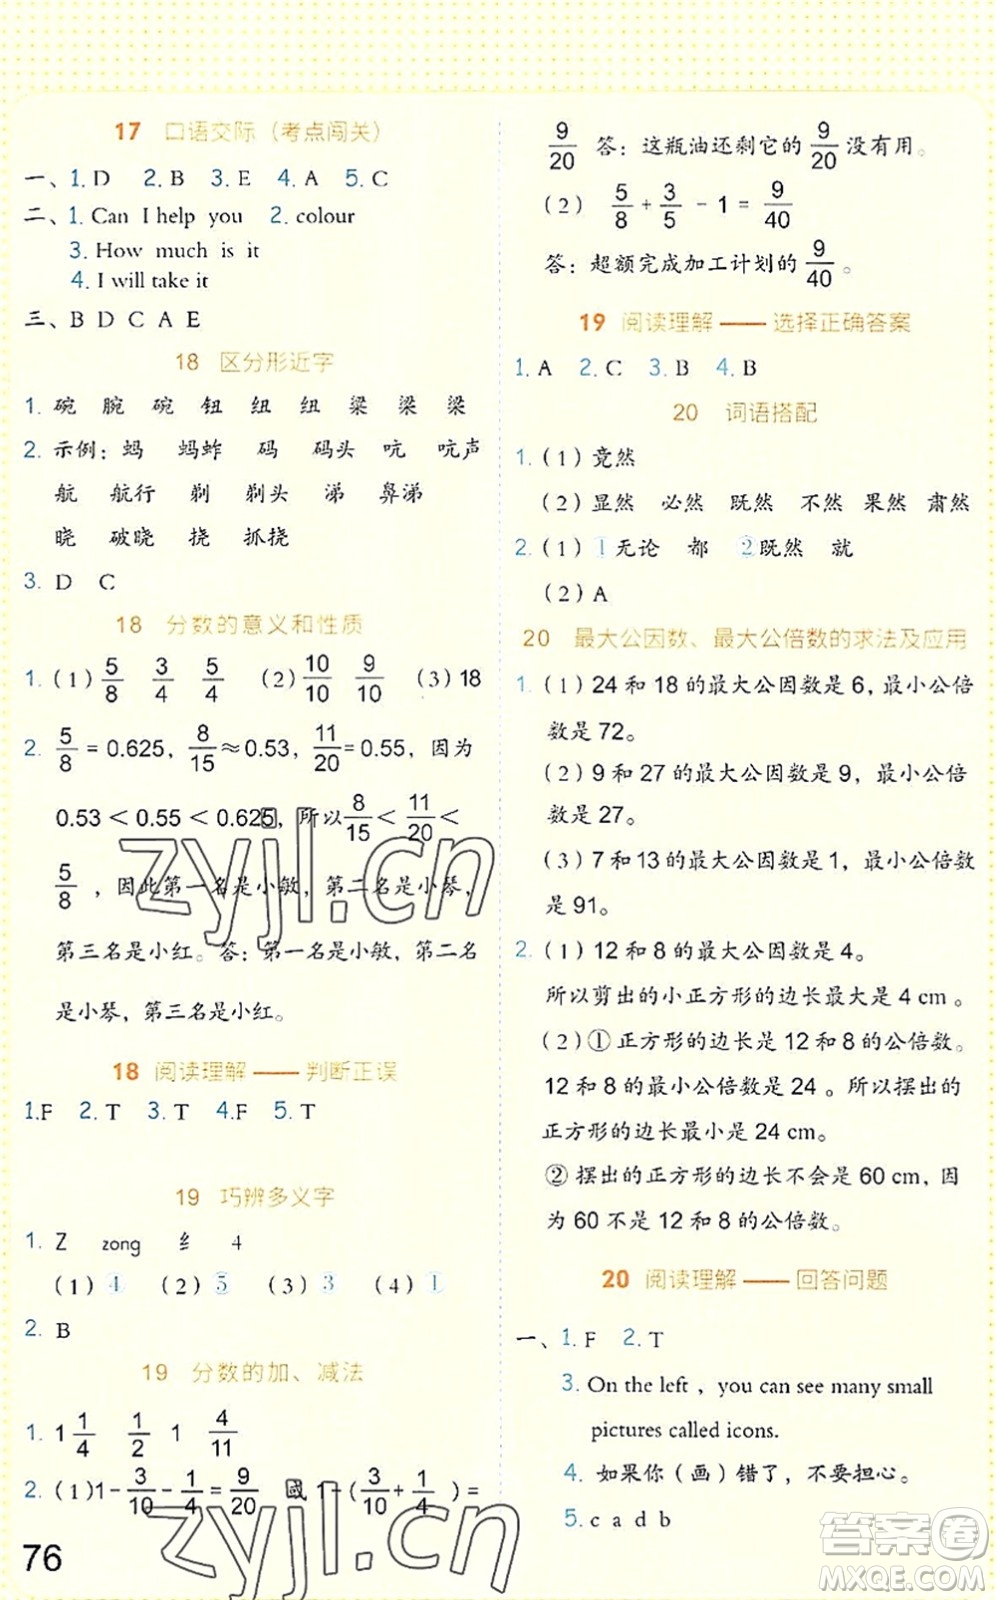 17 口语交际（考点闯关）
一、1. D 2. B 3. E 4. A 5. C
二、1. Can I help you 2. colour
3. How much is it
4. I will take it
三、B D C A E
18 区分形近字
1. 碗 腕 碗 钮 纽 纽 粱 梁 梁
2. 示例：蚂 蚂蚱 码 码头 吭 吭声
航 航行 剃 剃头 涕 鼻涕
晓 破晓 挠 抓挠
3. D C
18 分数的意义和性质
1.（1）5/8 3/4 5/4 （2）10/10 9/10 （3）18
2. 5/8 = 0.625，8/15 ≈ 0.53，11/20 = 0.55，因为
0.53 < 0.55 < 0.625，所以 8/15 < 11/20 <
5/8，因此第一名是小敏，第二名是小琴，
第三名是小红。答：第一名是小敏，第二名
是小琴，第三名是小红。
18 阅读理解——判断正误
1.F 2. T 3. T 4.F 5. T
19 巧辨多义字
1. Z zong 纟 4
（1）④ （2）⑤ （3）③ （4）①
2. B
19 分数的加、减法
1. 1 1/4 1/2 1 4/11
2.（1）1- 3/10 - 1/4 = 9/20 國 1-（3/10 + 1/4）=
76
9/20 答：这瓶油还剩它的 9/20 没有用。
（2） 5/8 + 3/5 - 1 = 9/40
答：超额完成加工计划的 9/40。
19 阅读理解——选择正确答案
1. A 2. C 3. B 4. B
20 词语搭配
1.（1）竟然
（2）显然 必然 既然 不然 果然 肃然
2.（1）①无论 都 ②既然 就
（2）A
20 最大公因数、最大公倍数的求法及应用
1.（1）24 和 18 的最大公因数是 6，最小公倍
数是 72。
（2）9 和 27 的最大公因数是 9，最小公倍
数是 27。
（3）7 和 13 的最大公因数是 1，最小公倍数
是 91。
2.（1）12 和 8 的最大公因数是 4。
所以剪出的小正方形的边长最大是 4 cm 。
（2）① 正方形的边长是 12 和 8 的公倍数。
12 和 8 的最小公倍数是 24 。所以摆出的
正方形的边长最小是 24 cm。
② 摆出的正方形的边长不会是 60 cm，因
为 60 不是 12 和 8 的公倍数。
20 阅读理解——回答问题
一、1. F 2. T
3. On the left , you can see many small
pictures called icons.
4. 如果你（画）错了，不要担心。
5. c a d b
zyjl.cn
zyjl.cn
答案圈
MXQE.COM